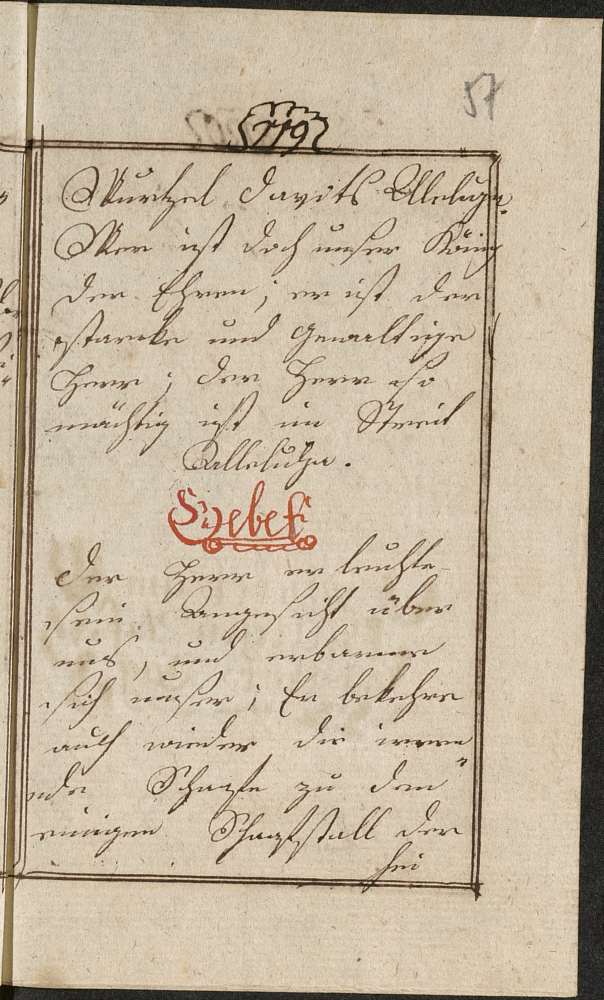 57
119
Wurtzel Davits Alleluja.
Wer ist doch unser König
der Ehren; er ist der
starcke und Gewaltige
Herr; der Herr so
mächtig ist im Streit
Alleluja.
Gebet
Der Herr erleuchte
sein Angesicht über
uns, und erbarme
sich unser; Er bekehre
auch wieder die irren
de Schaafe zu dem
einigen Schaafstall der
hei